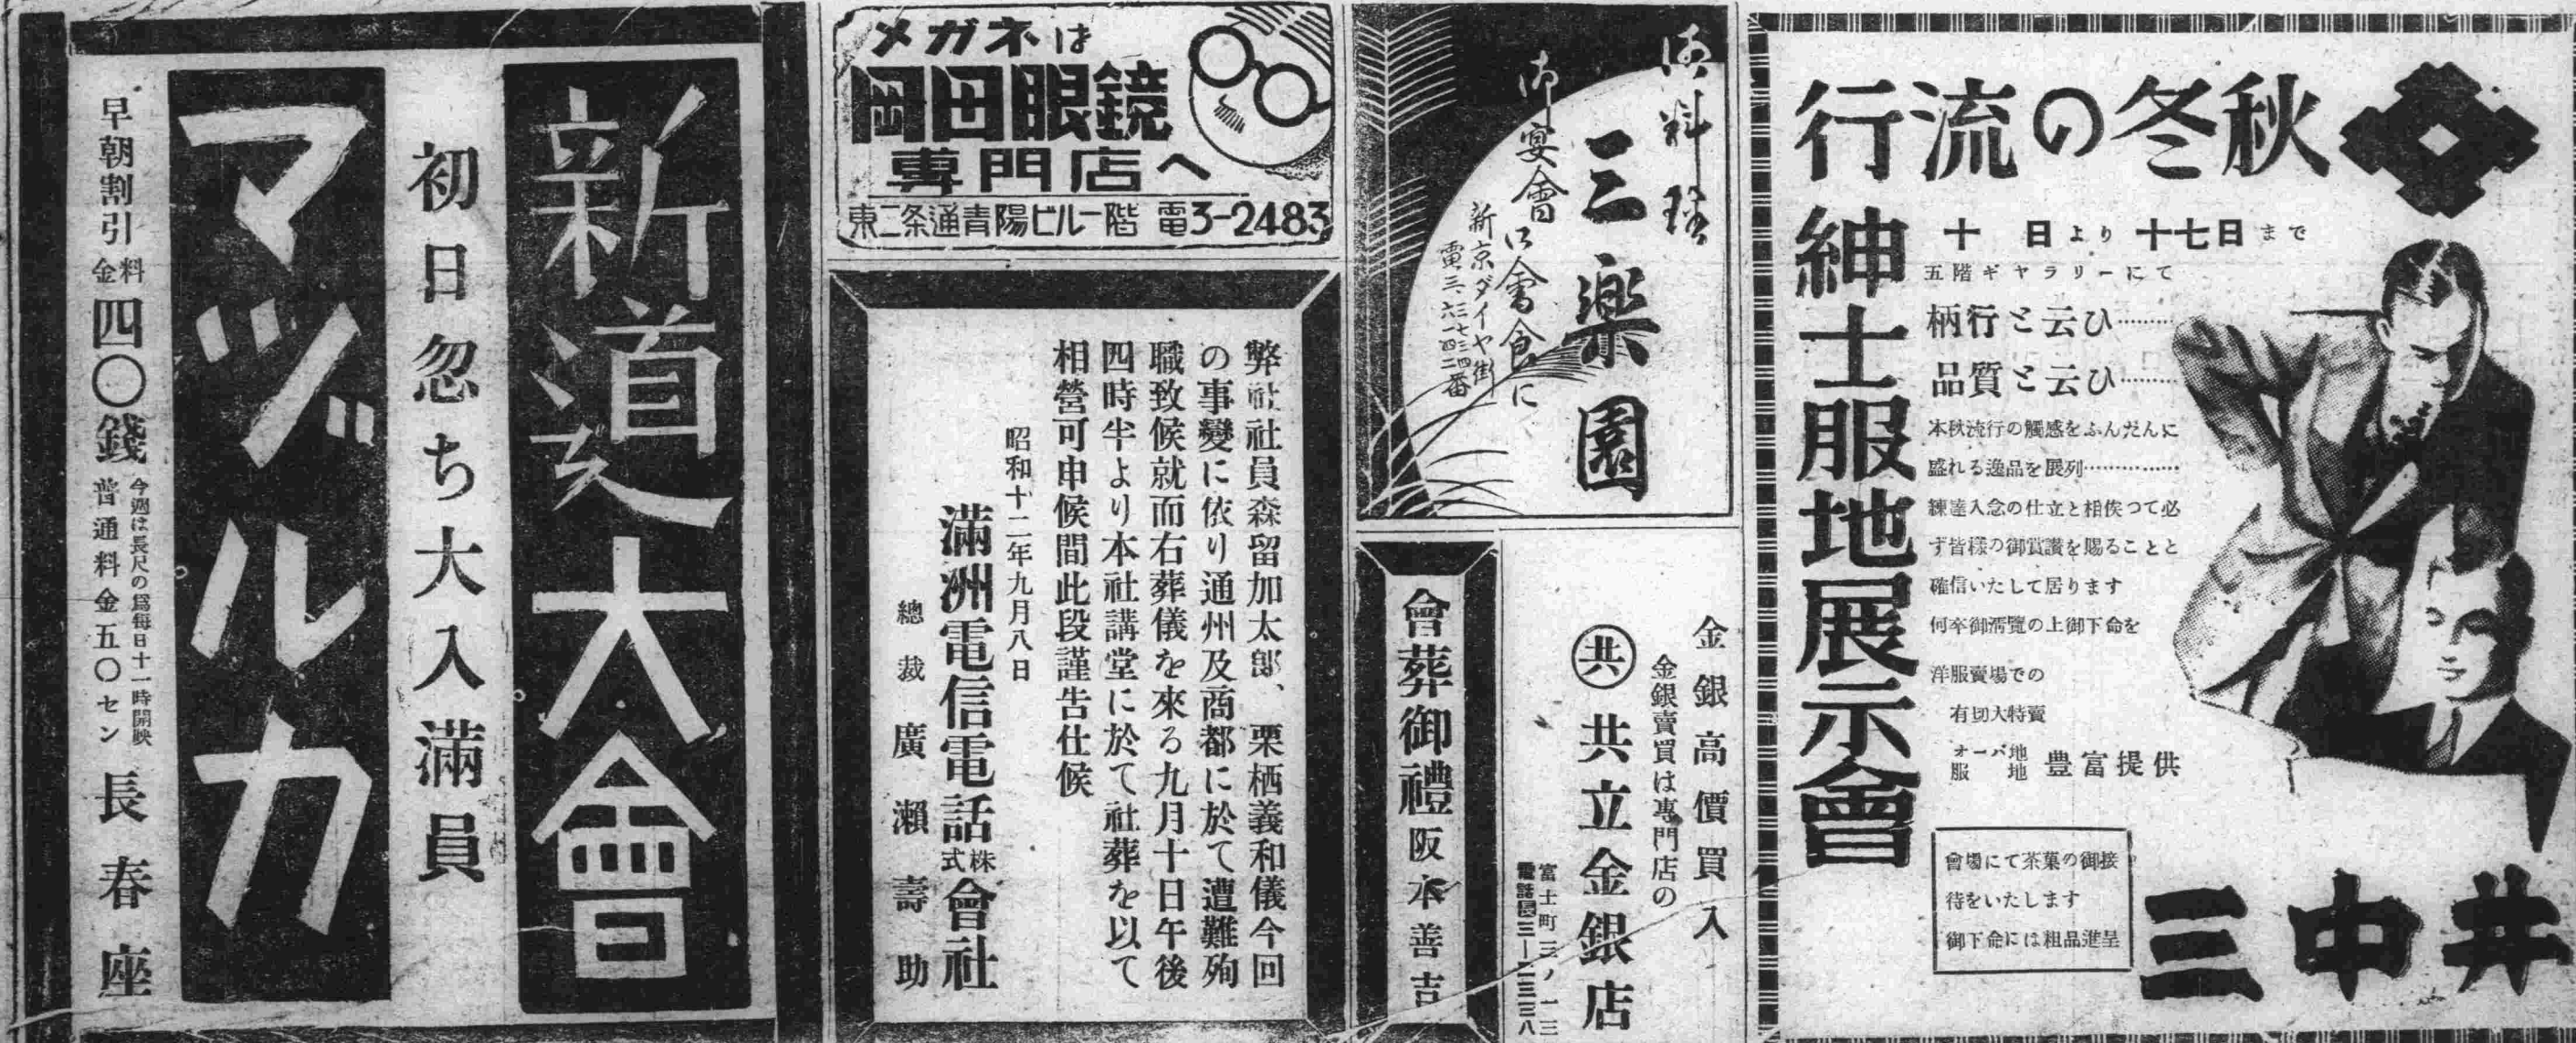 秋冬の流行
紳士服地展示會
十日より十七日まで
五階ギヤラリーにて
柄行と云ひ………
品質と云ひ………
本秋流行の觸感をふんだんに
盛れる逸品を展列……………
練達入念の仕立と相俟つて必
ず皆様の御賞讃を賜ることと
確信いたして居ります
何卒御清覽の上御下命を
洋服賣場での
有切大特賣
オーバ地
服地
豊富提供
會場にて茶菓の御接
待をいたします
御下命には粗品進呈
三中井
御料理
三楽園
御宴會に會食に
新京ダイヤ街
金銀高價買入
金銀賣買は專門店の
共 共立金銀店
富士町三ノ一三
電話長三―二三三八
會葬御禮
阪本善吉
メガネは
岡田眼鏡
專門店へ
東二条通青陽ビル一階 電3-2483
弊社社員森留加太郎、栗栖義和儀今回
の事變に依り通州及商都に於て遭難殉
職致候就而右葬儀を來る九月十日午後
四時半より本社講堂に於て社葬を以て
相營可申候間此段謹告仕候
昭和十二年九月八日
滿洲電信電話株式會社
總裁 廣瀬壽助
新道大會
初日忽ち大入滿員
マヅルカ
早朝割引料金四〇錢
今週は長尺の爲毎日十一時開映
普通料金五〇セン
長春座